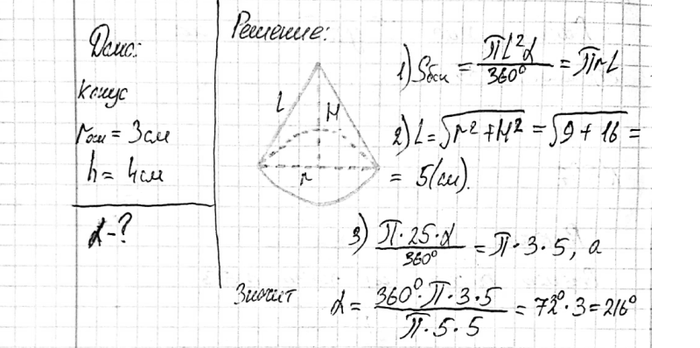 Дано:
конус
r осн = 3 см
h = 4 см
α - ?
Решение:
L
H
r
1) Sбок = πL²α / 360° = πrL
2) L = √(r² + H²) = √(9 + 16) =
= 5 (см).
3) π · 25 · α / 360° = π · 3 · 5, а
Значит α = 360° · π · 3 · 5 / π · 5 · 5 = 72° · 3 = 216°